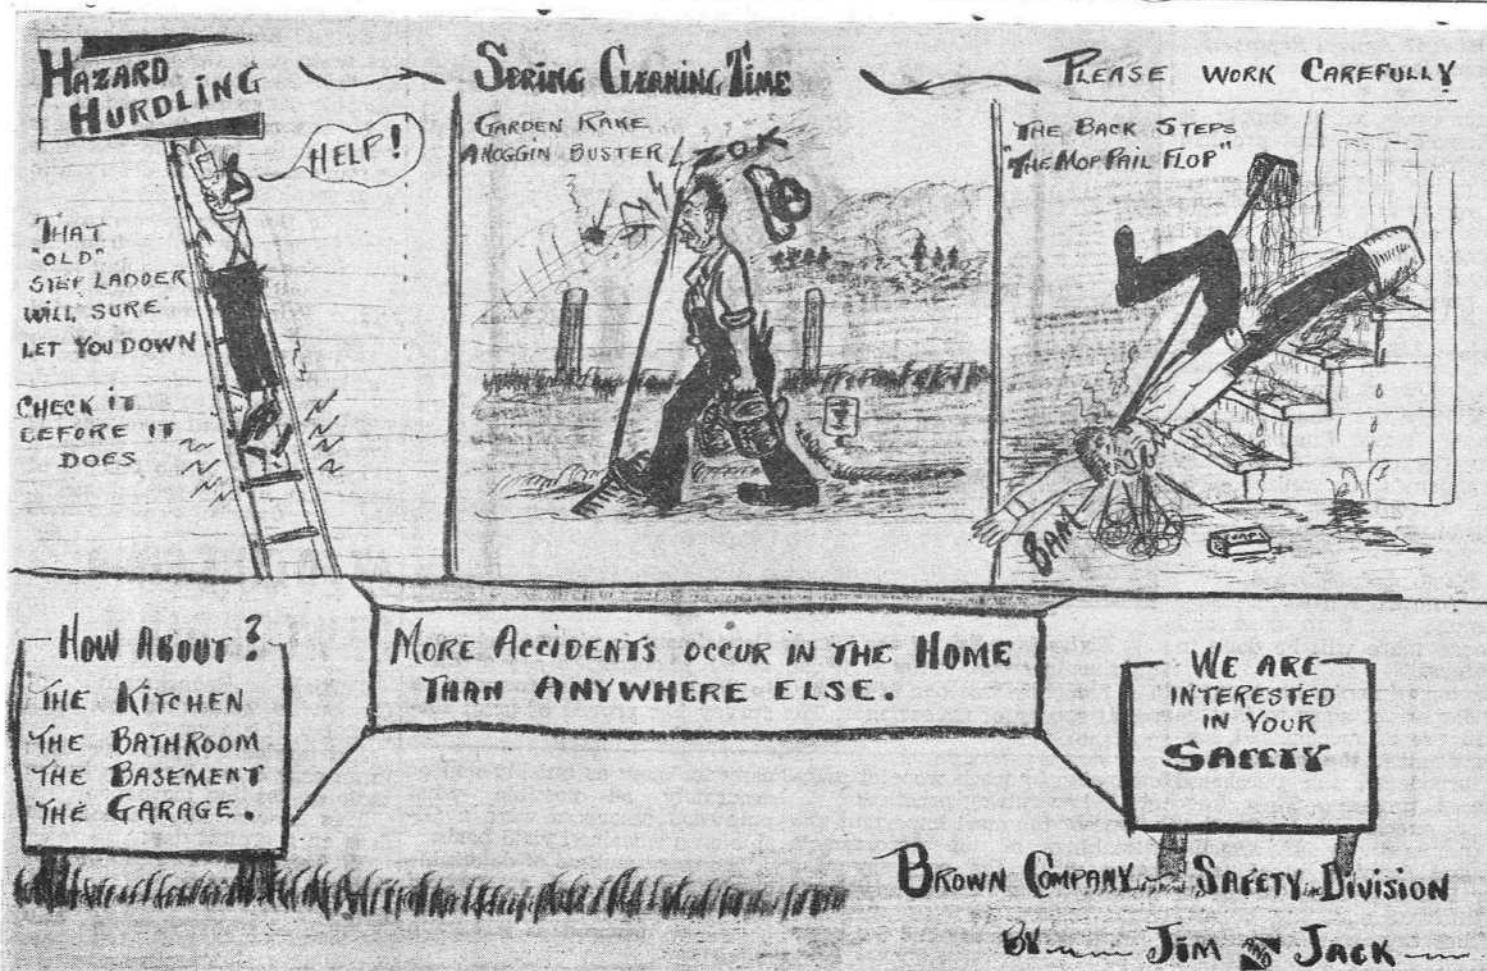 HAZARD
HURDLING
SPRING CLEANING TIME
PLEASE WORK CAREFULLY
HELP!
THAT
"OLD"
STEP LADDER
WILL SURE
LET YOU DOWN
CHECK IT
BEFORE IT
DOES
GARDEN RAKE
A NOGGIN BUSTER!
ZOK
THE BACK STEPS
"THE MOP PAIL FLOP"
BAM
SOAP
HOW ABOUT?
THE KITCHEN
THE BATHROOM
THE BASEMENT
THE GARAGE.
MORE ACCIDENTS OCCUR IN THE HOME
THAN ANYWHERE ELSE.
WE ARE
INTERESTED
IN YOUR
SAFETY
BROWN COMPANY SAFETY DIVISION
BY JIM AND JACK